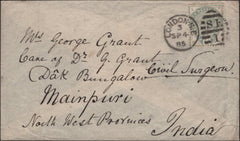 LONDON·S.E
3
SP 4
85
S.E
1
Mrs George Grant
Care of Dr G. Grant
Civil Surgeon
(Dâk Bungalow
Mainpuri
North West Provinces
India